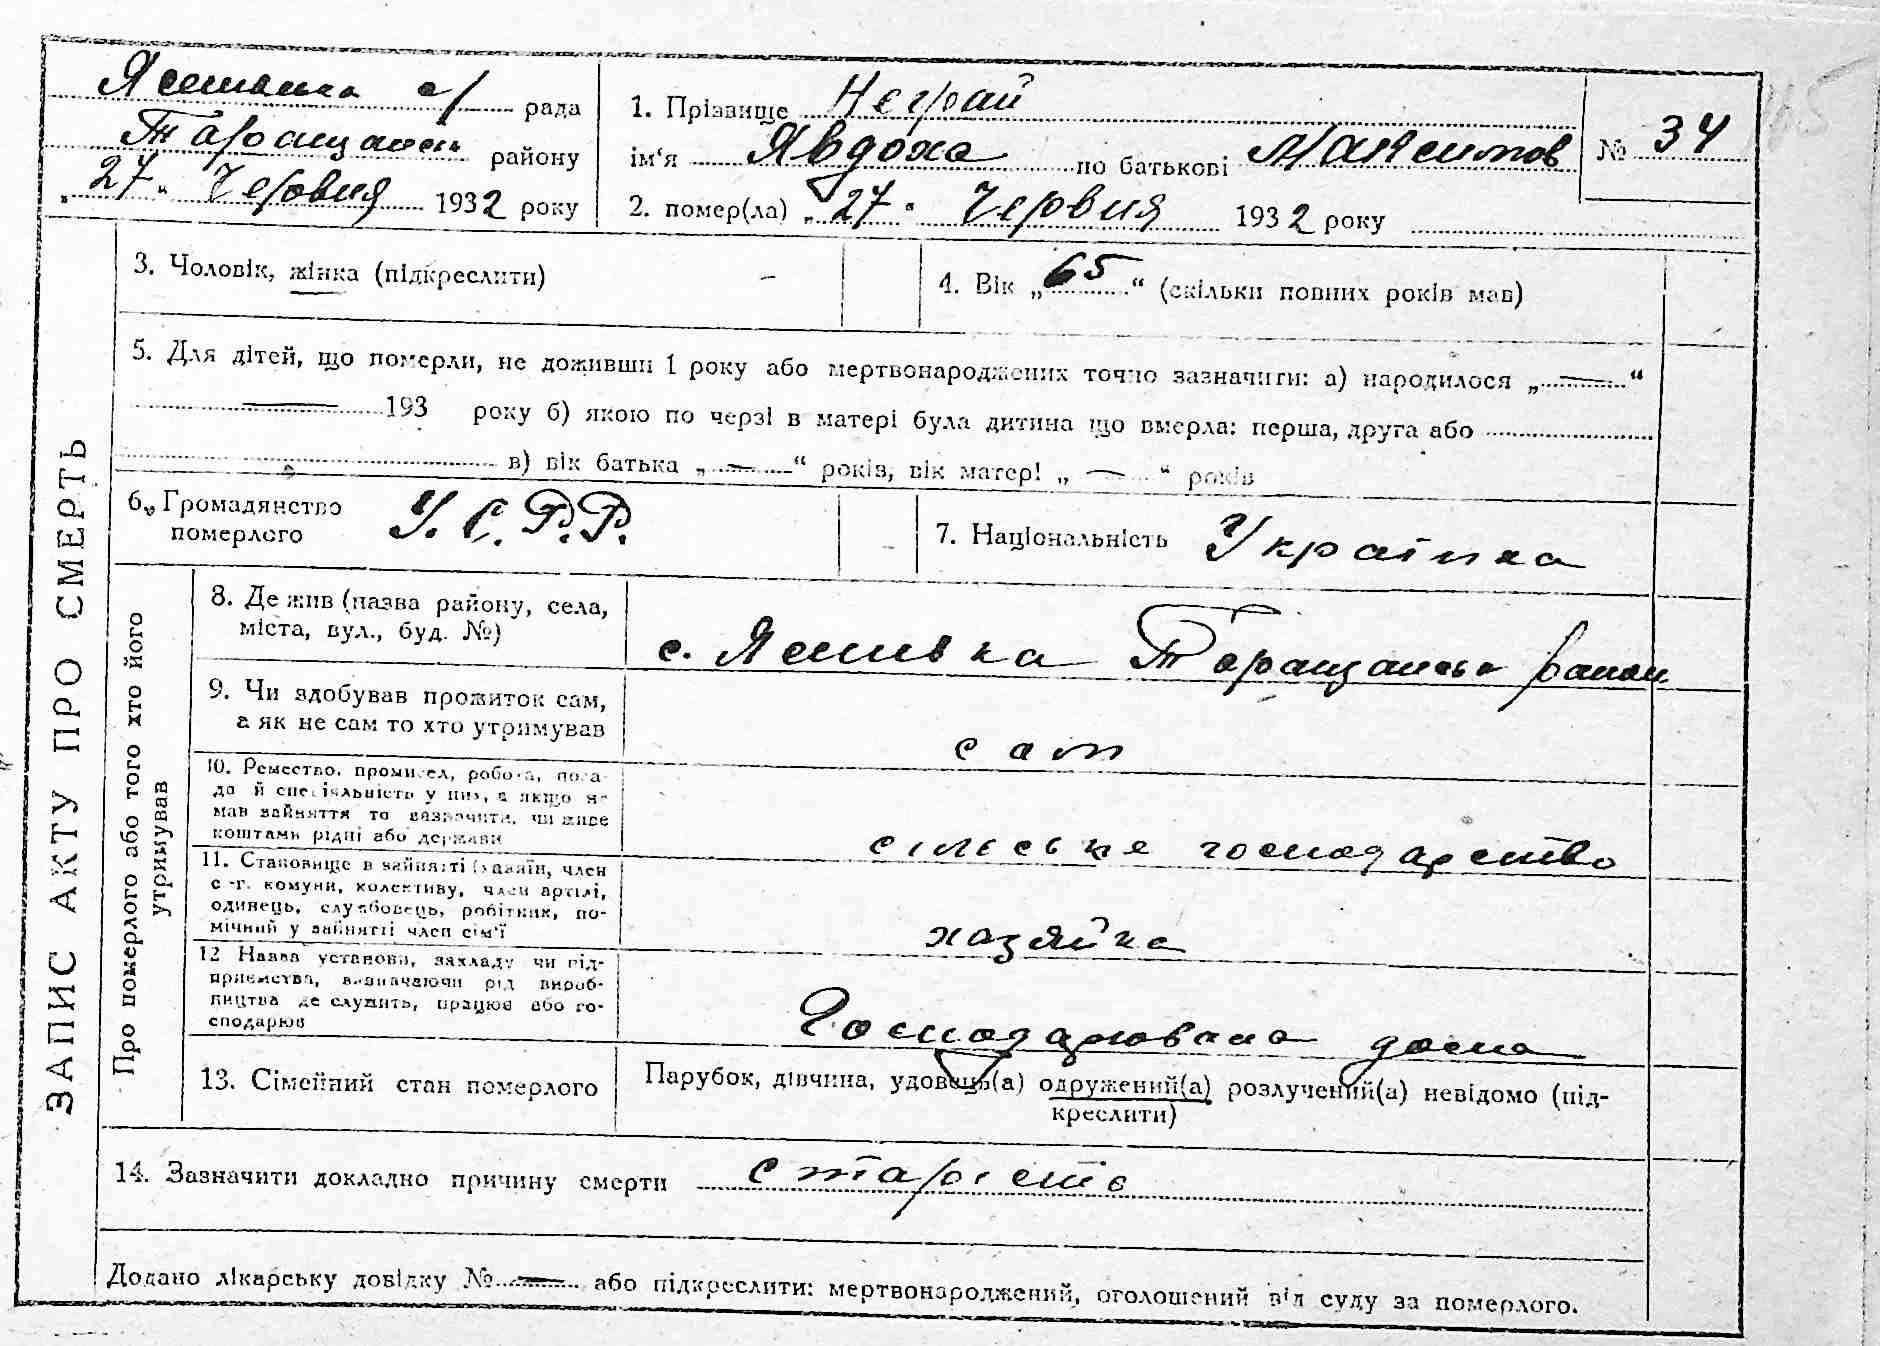 Ясенівка с/ рада
Таращанськ району
„27“ Червня 1932 року
1. Прізвище Неграй
ім‘я Явдоха по батькові Максимов
№ 34
2. помер(ла) „27“ Червня 1932 року
3. Чоловік, жінка (підкреслити)
4. Вік „65“ (скільки повних років мав)
5. Для дітей, що померли, не доживши 1 року або мертвонароджених точно зазначити: а) народилося „—“
— 193 року б) якою по черзі в матері була дитина що вмерла: перша, друга або
в) вік батька „—“ років, вік матері „—“ років
6. Громадянство
померлого
У.С.Р.Р.
7. Національність Українка
ЗАПИС АКТУ ПРО СМЕРТЬ
Про померлого або того хто його
утримував
8. Де жив (назва району, села,
міста, вул., буд. №)
с. Ясинівка Таращанськ район
9. Чи здобував прожиток сам,
а як не сам то хто утримував
сам
10. Ремество, промисел, робота, поса-
да й спеціяльність у них, а якщо не
мав зайняття то зазначити, чи живе
коштами рідні або держави
сільське господарство
11. Становище в зайнятті (хазяїн, член
с.-г. комуни, колективу, член артілі,
одинець, службовець, робітник, по-
мічний у зайнятті член сім‘ї
хазяйка
12 Назва установи, закладу чи під-
приємства, визначаючи рід вироб-
ництва де служить, працює або го-
сподарює
Господарювала дома
13. Сімейний стан померлого
Парубок, дівчина, удовець(а) одружений(а) розлучений(а) невідомо (під-
креслити)
14. Зазначити докладно причину смерти старість
Додано лікарську довідку №— або підкреслити: мертвонароджений, оголошений від суду за померлого.